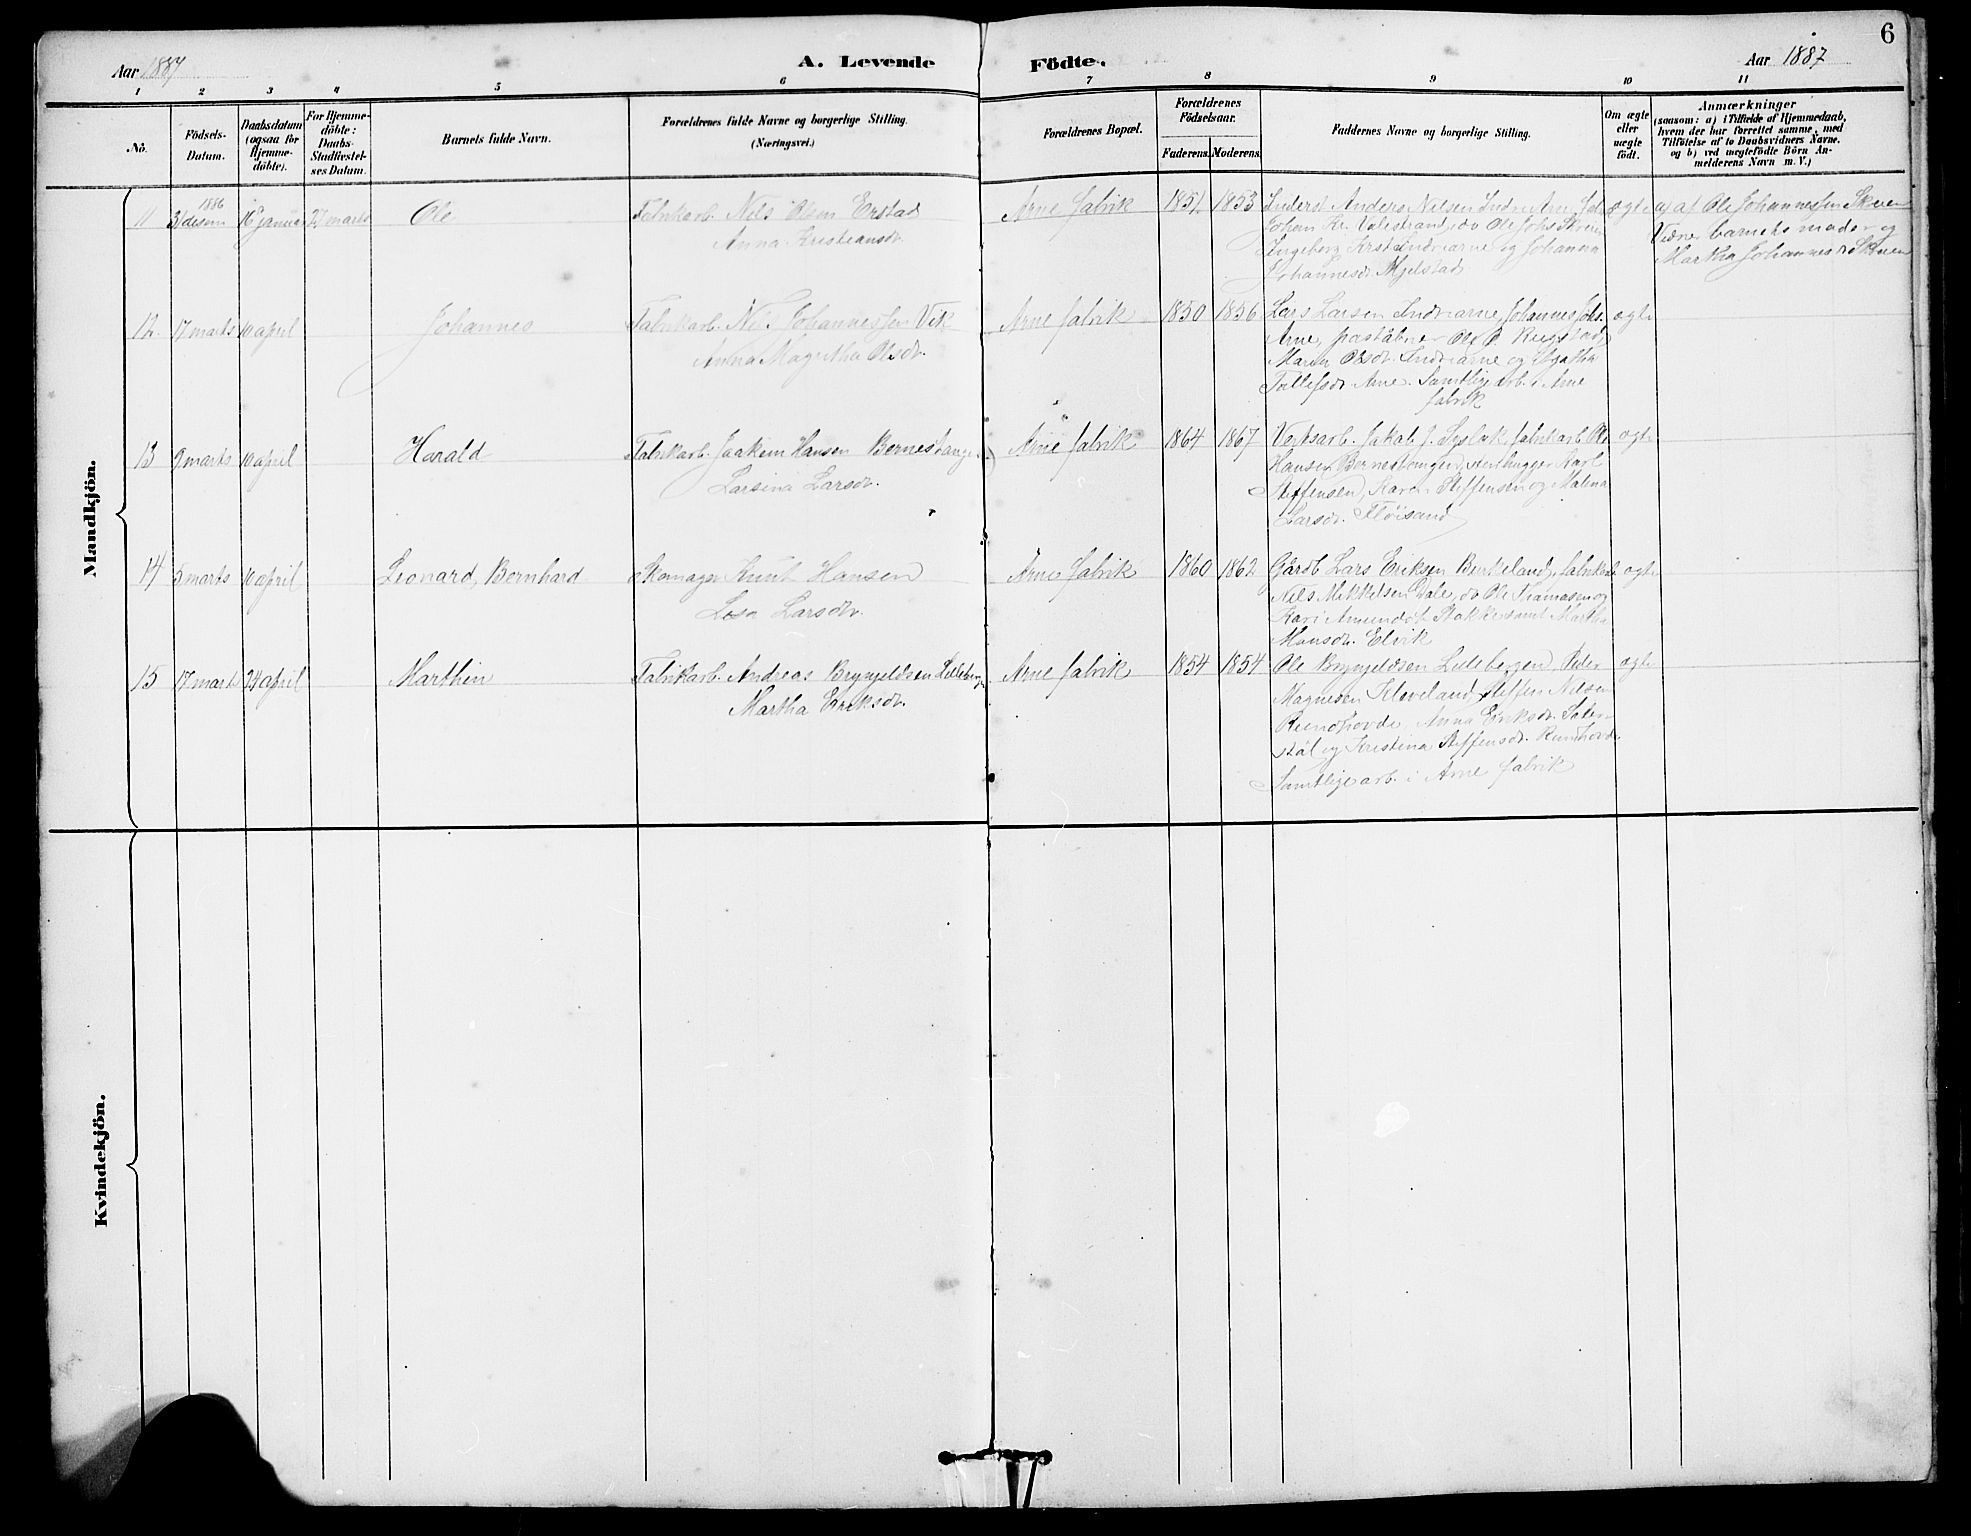 6
Aar 1887
A. Levende Födte.
Aar 1887
1 2 3 4 5 6 7 8 9 10 11
No.
Födsels-Datum.
Daabsdatum (ogsaa for Hjemme-döbte).
For Hjemme-döbte: Daabs-Stadfæstel-ses Datum.
Barnets fulde Navn.
Forældrenes fulde Navne og borgerlige Stilling.
(Næringsvei.)
Forældrenes Bopæl.
Forældrenes Födselsaar.
Faderens. Moderens.
Faddernes Navne og borgerlige Stilling.
Om ægte eller uægte födt.
Anmærkninger
(saasom: a) i Tilfælde af Hjemmedaab, hvem der har forrettet samme, med Tilföielse af to Daabsvidners Navne. og b) ved uægtefödte Börn An-melderens Navn m. V.)
Mandkjön.
11 1886 31 desem 16 januar 27 marts Ole
Fabrikarb. Nils Olsen Erstad
Anna Kristiansdr.
Arne fabrik 1851 1853
Inderst Anders Nilsen Indre Arne
Johan Kr. Valestrand, do Ole Johs Skuen
Ingeborg Indrearne og Johanna
Johannesdr. Mjelstad
ægte
a) af Ole Johannessen Skuen
Vidner barnets moder og
Martha Johannesdr Skuen
12 17 marts 10 april Johannes
Fabrikarb. Nils Johannessen Vik
Anna Magretha Olsdr.
Arne fabrik 1850 1856
Lars Larsen Indrearne, Johannes Johs.
Arne, poståbner Ole
Maren Olsdr. Indrearne og Agatha
Tollefsdr Arne. Samtlige arb. i Arne
fabrik
ægte
13 9 marts 10 april Harald
Fabrikarb. Joakim Hansen Bernestangen
Larsina Larsdr.
Arne fabrik 1864 1867
Verksarb. Jakob J. Syslak, fabrikarb. Ole
Hansen Bernestangen, stenhugger Karl
Steffensen, Karen Steffensen og Malena
Larsdr. Flöisand
ægte
14 5 marts 10 april Leonard Bernhard
Skomager Knut Hansen
Lisa Larsdr.
Arne fabrik 1860 1862
Gårdb Lars Eriksen Birkeland, fabrikarb.
Nils Mikkelsen Dale, do Ole Thomasen og
Kari Amundsdr. Stokke samt Martha
Monsdr. Elvik
ægte
15 17 marts 24 april Marthin
Fabrikarb. Andreas Brynjeldsen Lillebergen
Martha Eriksdr.
Arne fabrik 1854 1854
Ole Brynjeldsen Lillebergen, Peder
Magnesen Kleveland, Steffen Nilsen
Rundhovde, Anna Eriksdr. Sæter-
stöl og Kristina Steffensdr. Rundhovde
Samtlige arb. i Arne fabrik
ægte
Kvindekjön.